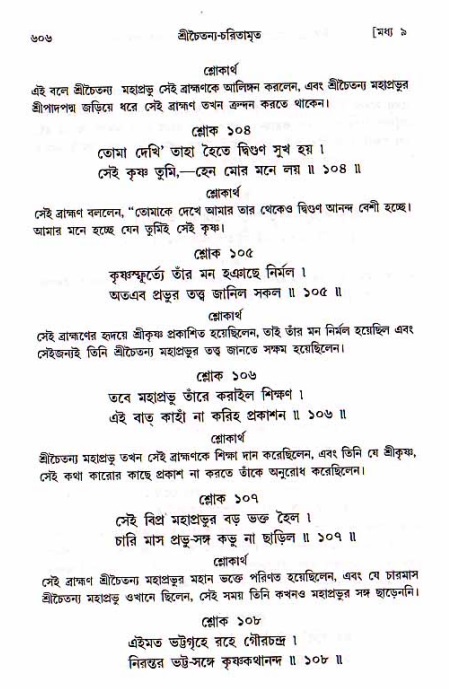 ৬০৬ শ্রীচৈতন্য-চরিতামৃত [মধ্য ৯
শ্লোকার্থ
এই বলে শ্রীচৈতন্য মহাপ্রভু সেই ব্রাহ্মণকে আলিঙ্গন করলেন, এবং শ্রীচৈতন্য মহাপ্রভুর
শ্রীপাদপদ্ম জড়িয়ে ধরে সেই ব্রাহ্মণ তখন ক্রন্দন করতে থাকেন।
শ্লোক ১০৪
তোমা দেখি' তাহা হৈতে দ্বিগুণ সুখ হয় ।
সেই কৃষ্ণ তুমি,—হেন মোর মনে লয় ॥ ১০৪ ॥
শ্লোকার্থ
সেই ব্রাহ্মণ বললেন, “তোমাকে দেখে আমার তার থেকেও দ্বিগুণ আনন্দ বেশী হচ্ছে।
আমার মনে হচ্ছে যেন তুমিই সেই কৃষ্ণ।
শ্লোক ১০৫
কৃষ্ণস্ফূর্ত্যে তাঁর মন হঞাছে নির্মল ।
অতএব প্রভুর তত্ত্ব জানিল সকল ॥ ১০৫ ॥
শ্লোকার্থ
সেই ব্রাহ্মণের হৃদয়ে শ্রীকৃষ্ণ প্রকাশিত হয়েছিলেন, তাই তাঁর মন নির্মল হয়েছিল এবং
সেইজন্যই তিনি শ্রীচৈতন্য মহাপ্রভুর তত্ত্ব জানতে সক্ষম হয়েছিলেন।
শ্লোক ১০৬
তবে মহাপ্রভু তাঁরে করাইল শিক্ষণ ।
এই বাত্ কাহাঁ না করিহ প্রকাশন ॥ ১০৬ ॥
শ্লোকার্থ
শ্রীচৈতন্য মহাপ্রভু তখন সেই ব্রাহ্মণকে শিক্ষা দান করেছিলেন, এবং তিনি যে শ্রীকৃষ্ণ,
সেই কথা কারোর কাছে প্রকাশ না করতে তাঁকে অনুরোধ করেছিলেন।
শ্লোক ১০৭
সেই বিপ্র মহাপ্রভুর বড় ভক্ত হৈল ।
চারি মাস প্রভু-সঙ্গ কভু না ছাড়িল ॥ ১০৭ ॥
শ্লোকার্থ
সেই ব্রাহ্মণ শ্রীচৈতন্য মহাপ্রভুর মহান ভক্তে পরিণত হয়েছিলেন, এবং যে চারমাস
শ্রীচৈতন্য মহাপ্রভু ওখানে ছিলেন, সেই সময় তিনি কখনও মহাপ্রভুর সঙ্গ ছাড়েননি।
শ্লোক ১০৮
এইমত ভট্টগৃহে রহে গৌরচন্দ্র ।
নিরন্তর ভট্ট-সঙ্গে কৃষ্ণকথানন্দ ॥ ১০৮ ॥